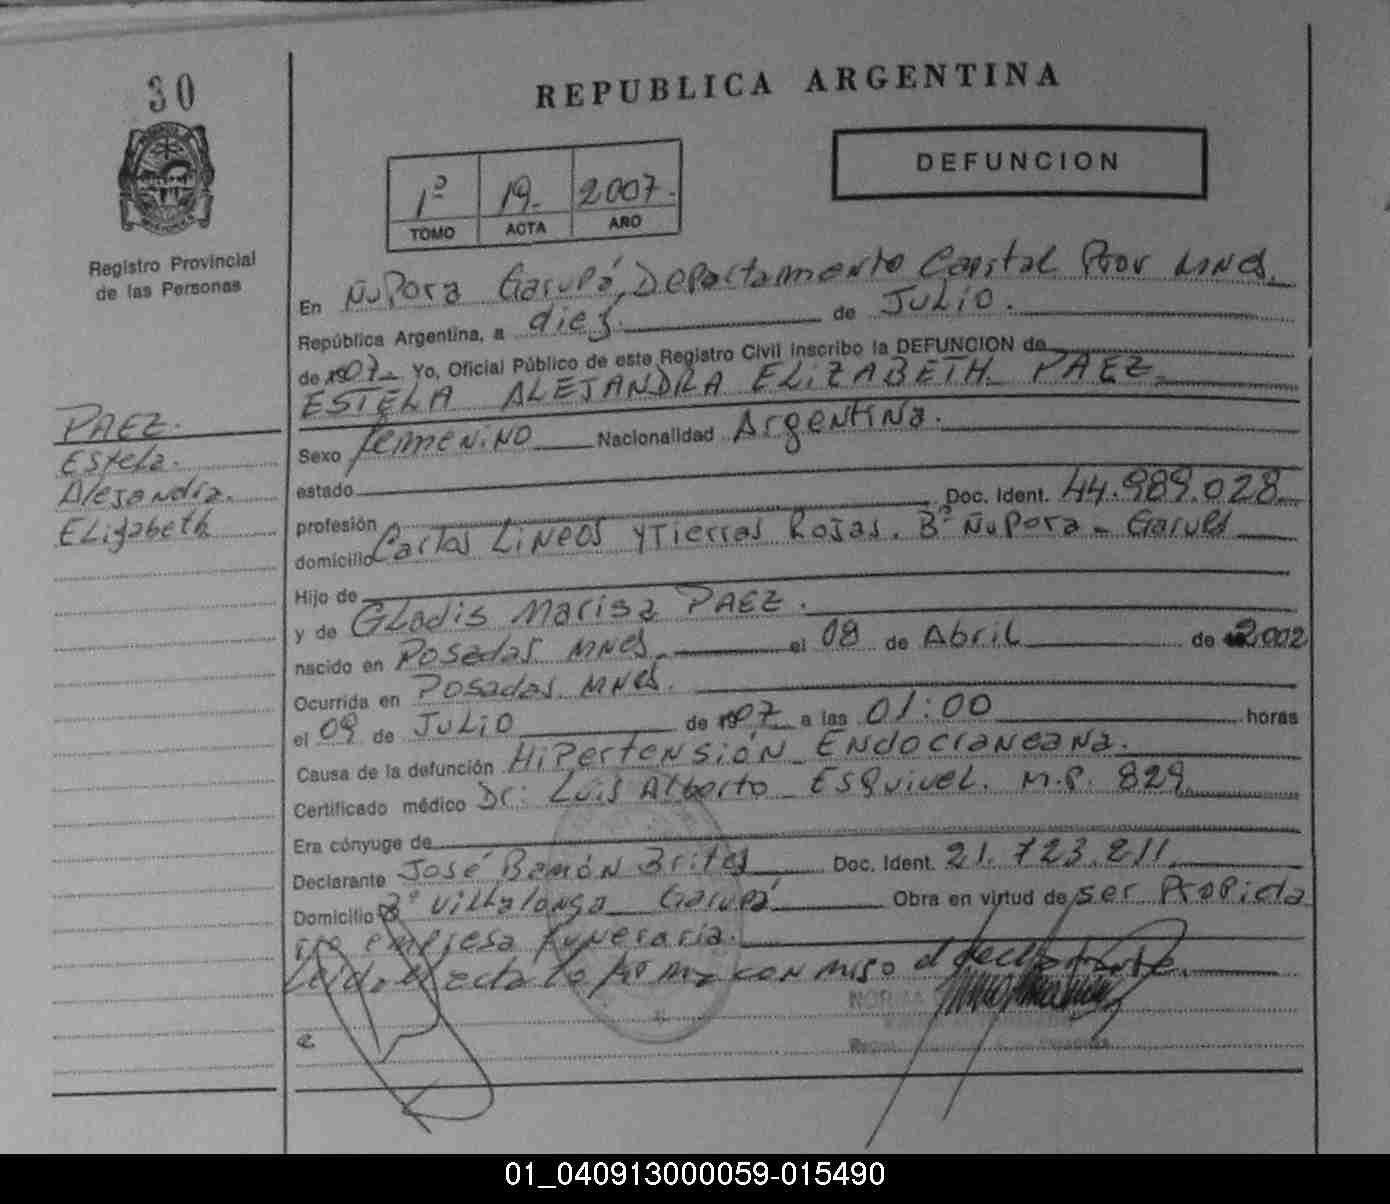 30
REPUBLICA ARGENTINA
DEFUNCION
1º 19. 2007.
TOMO ACTA AÑO
Registro Provincial
de las Personas
En ÑuPora Garupá, Departamento Capital Prov MNes.
República Argentina, a diez de JULIO.
de 2007 Yo, Oficial Público de este Registro Civil inscribo la DEFUNCION de
ESTELA ALEJANDRA ELIZABETH PAEZ
PAEZ.
Estela.
Alejandra.
Elizabeth
Sexo femenino Nacionalidad Argentina.
estado
profesión Doc. Ident. 44.989.028
domicilio Carlos Lineos y Tierras Rojas. Bº ÑuPora - Garupá
Hijo de
y de Gladis Marisa PAEZ.
nacido en Posadas MNes. el 08 de Abril de 2002
Ocurrida en Posadas MNes.
el 09 de JULIO de 2007 a las 01:00 horas
Causa de la defunción Hipertensión Endocraneana.
Certificado médico Dr: Luis Alberto Esquivel. M.P. 829
Era cónyuge de
Declarante José Ramón Brites Doc. Ident. 21.723.211
Domicilio Bº Villalonga Garupá Obra en virtud de ser Propieta
rio empresa funeraria.
Leída el acta la firma conmigo el declarante.
NORMA
01_040913000059-015490